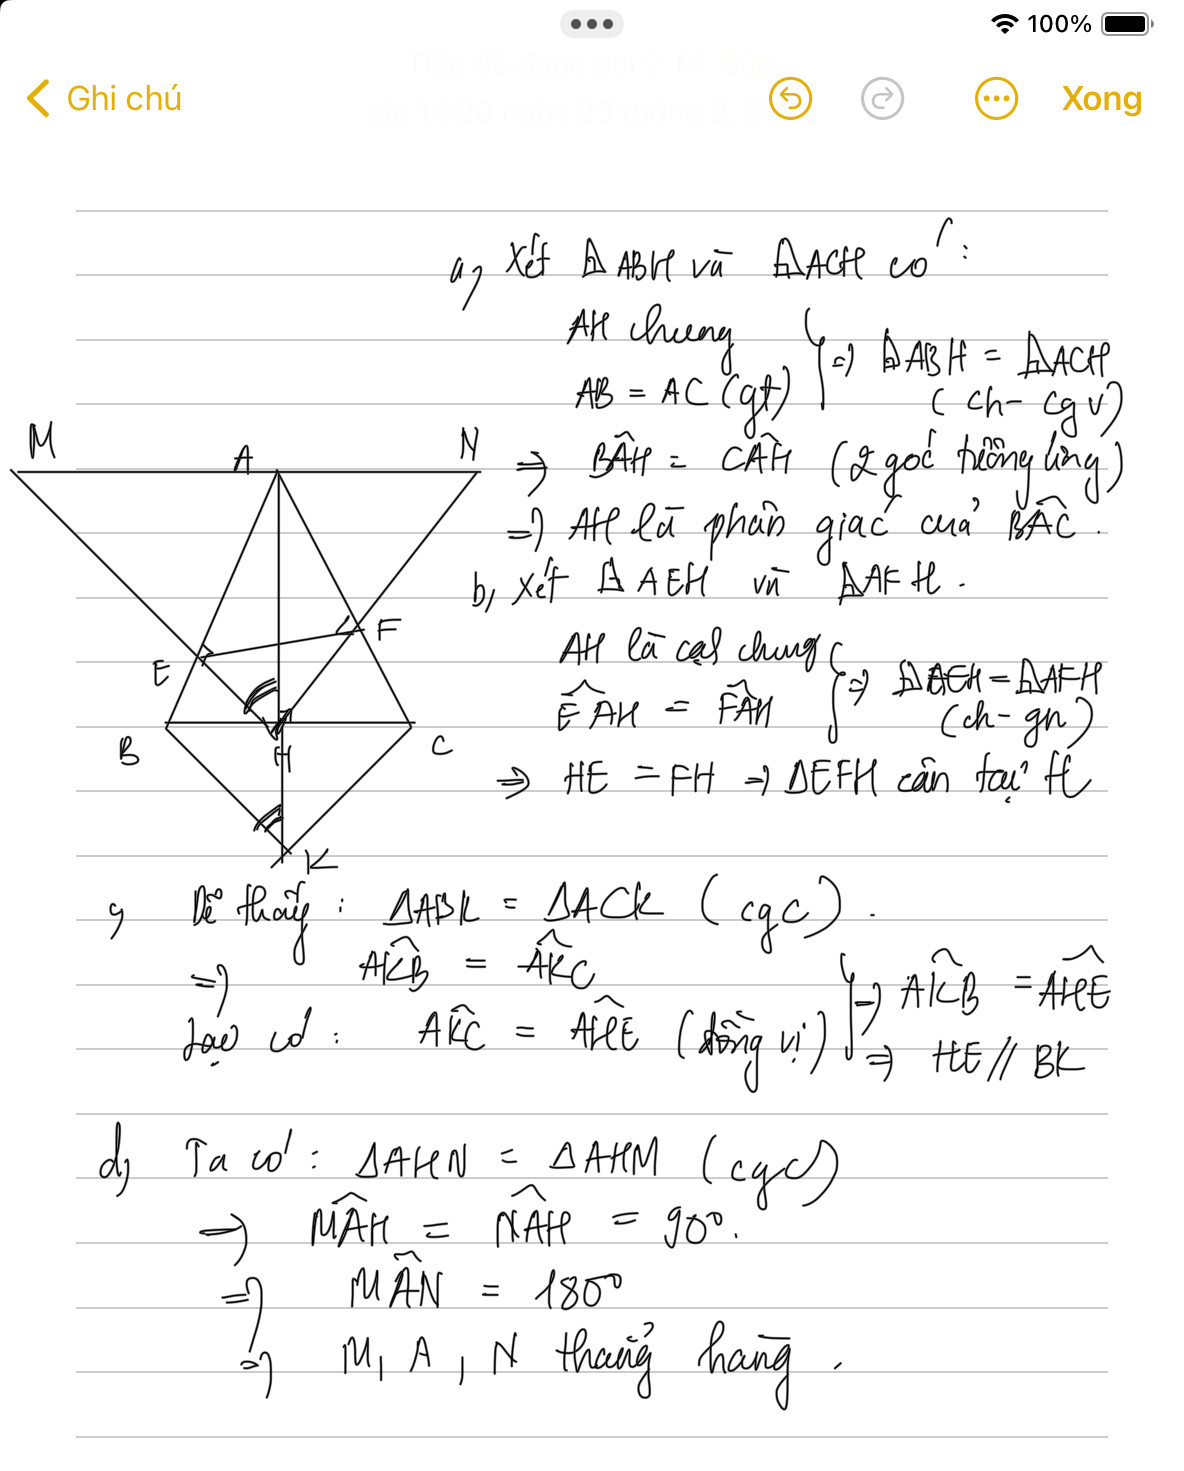 100%
Ghi chú
Xong
a, Xét △ABH và △ACH có:
AH chung
AB = AC (gt)
=> △ABH = △ACH
(ch - cgv)
=> BÂH = CÂH (2 góc tương ứng)
=> AH là phân giác của BÂC.
b, Xét △AEH và △AFH.
AH là cạh chung
ÊAH = FÂH
=> △AEH = △AFH
(ch - gn)
=> HE = FH => △EFH cân tại H
M
A
N
E
F
B
H
C
K
c, Dễ thấy: △ABK = △ACK (cgc).
=> AK̂B = AK̂C
Lại có: AK̂C = AĤE (đồng vị)
=> AK̂B = AĤE
=> HE // BK
d, Ta có: △AHN = △AHM (cgc)
=> MÂH = NÂH = 90°.
=> MÂN = 180°
=> M, A, N thẳng hàng.